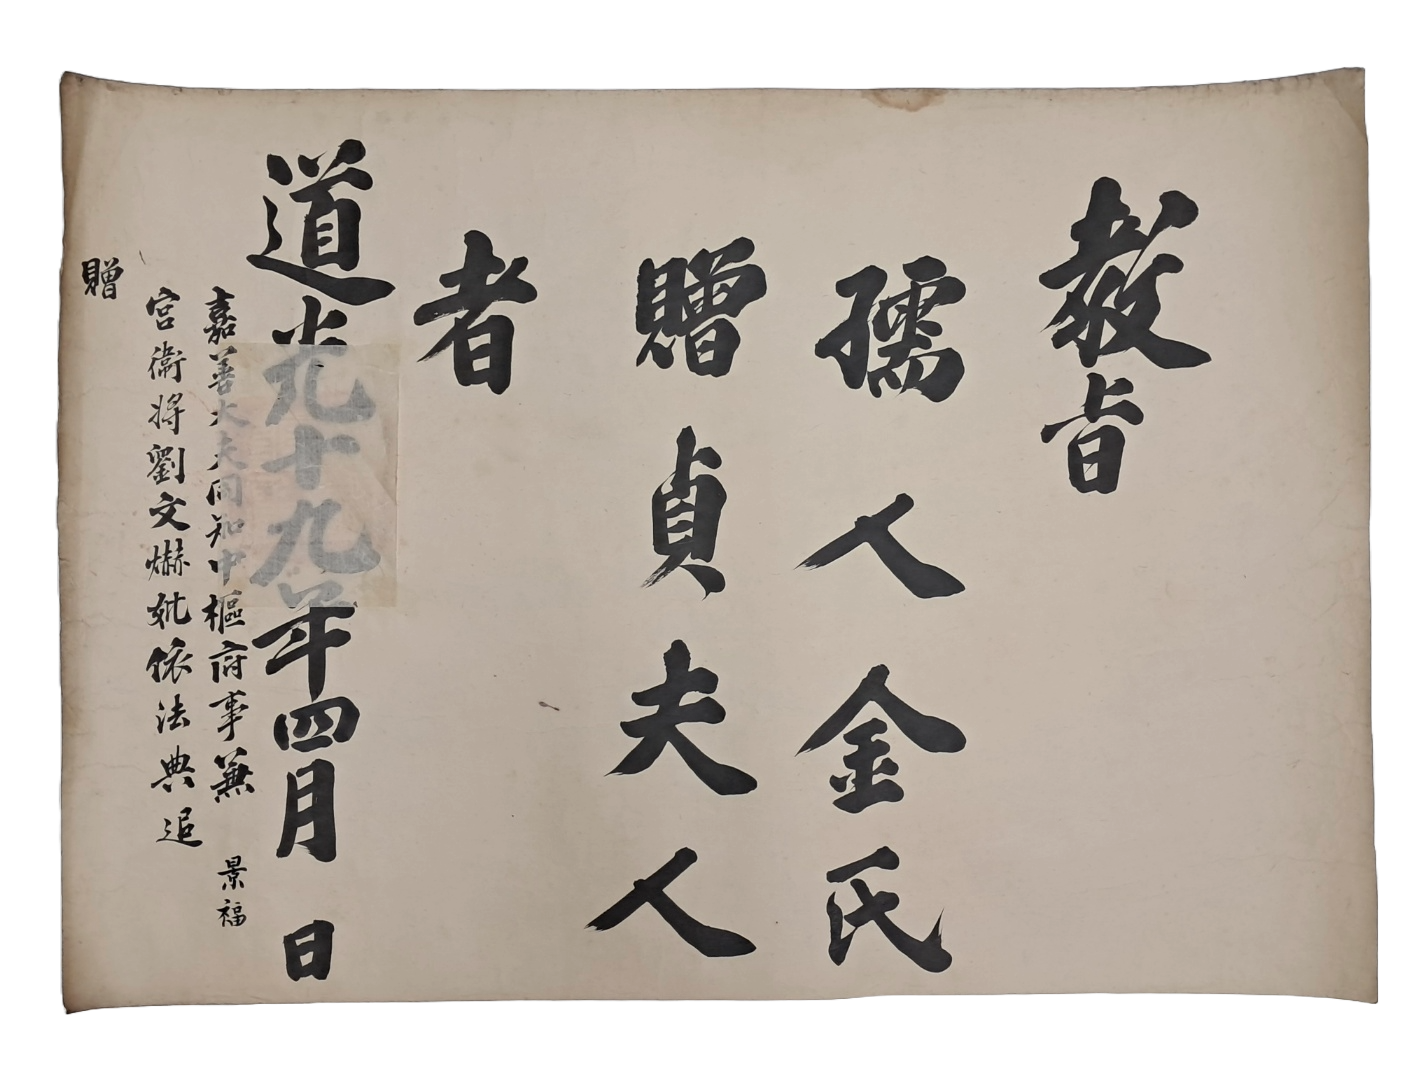 教旨
孺人金氏
贈貞夫人
者
道光十九年四月 日
嘉善大夫同知中樞府事兼 景福
宮衛將劉文爀妣依法典追
贈